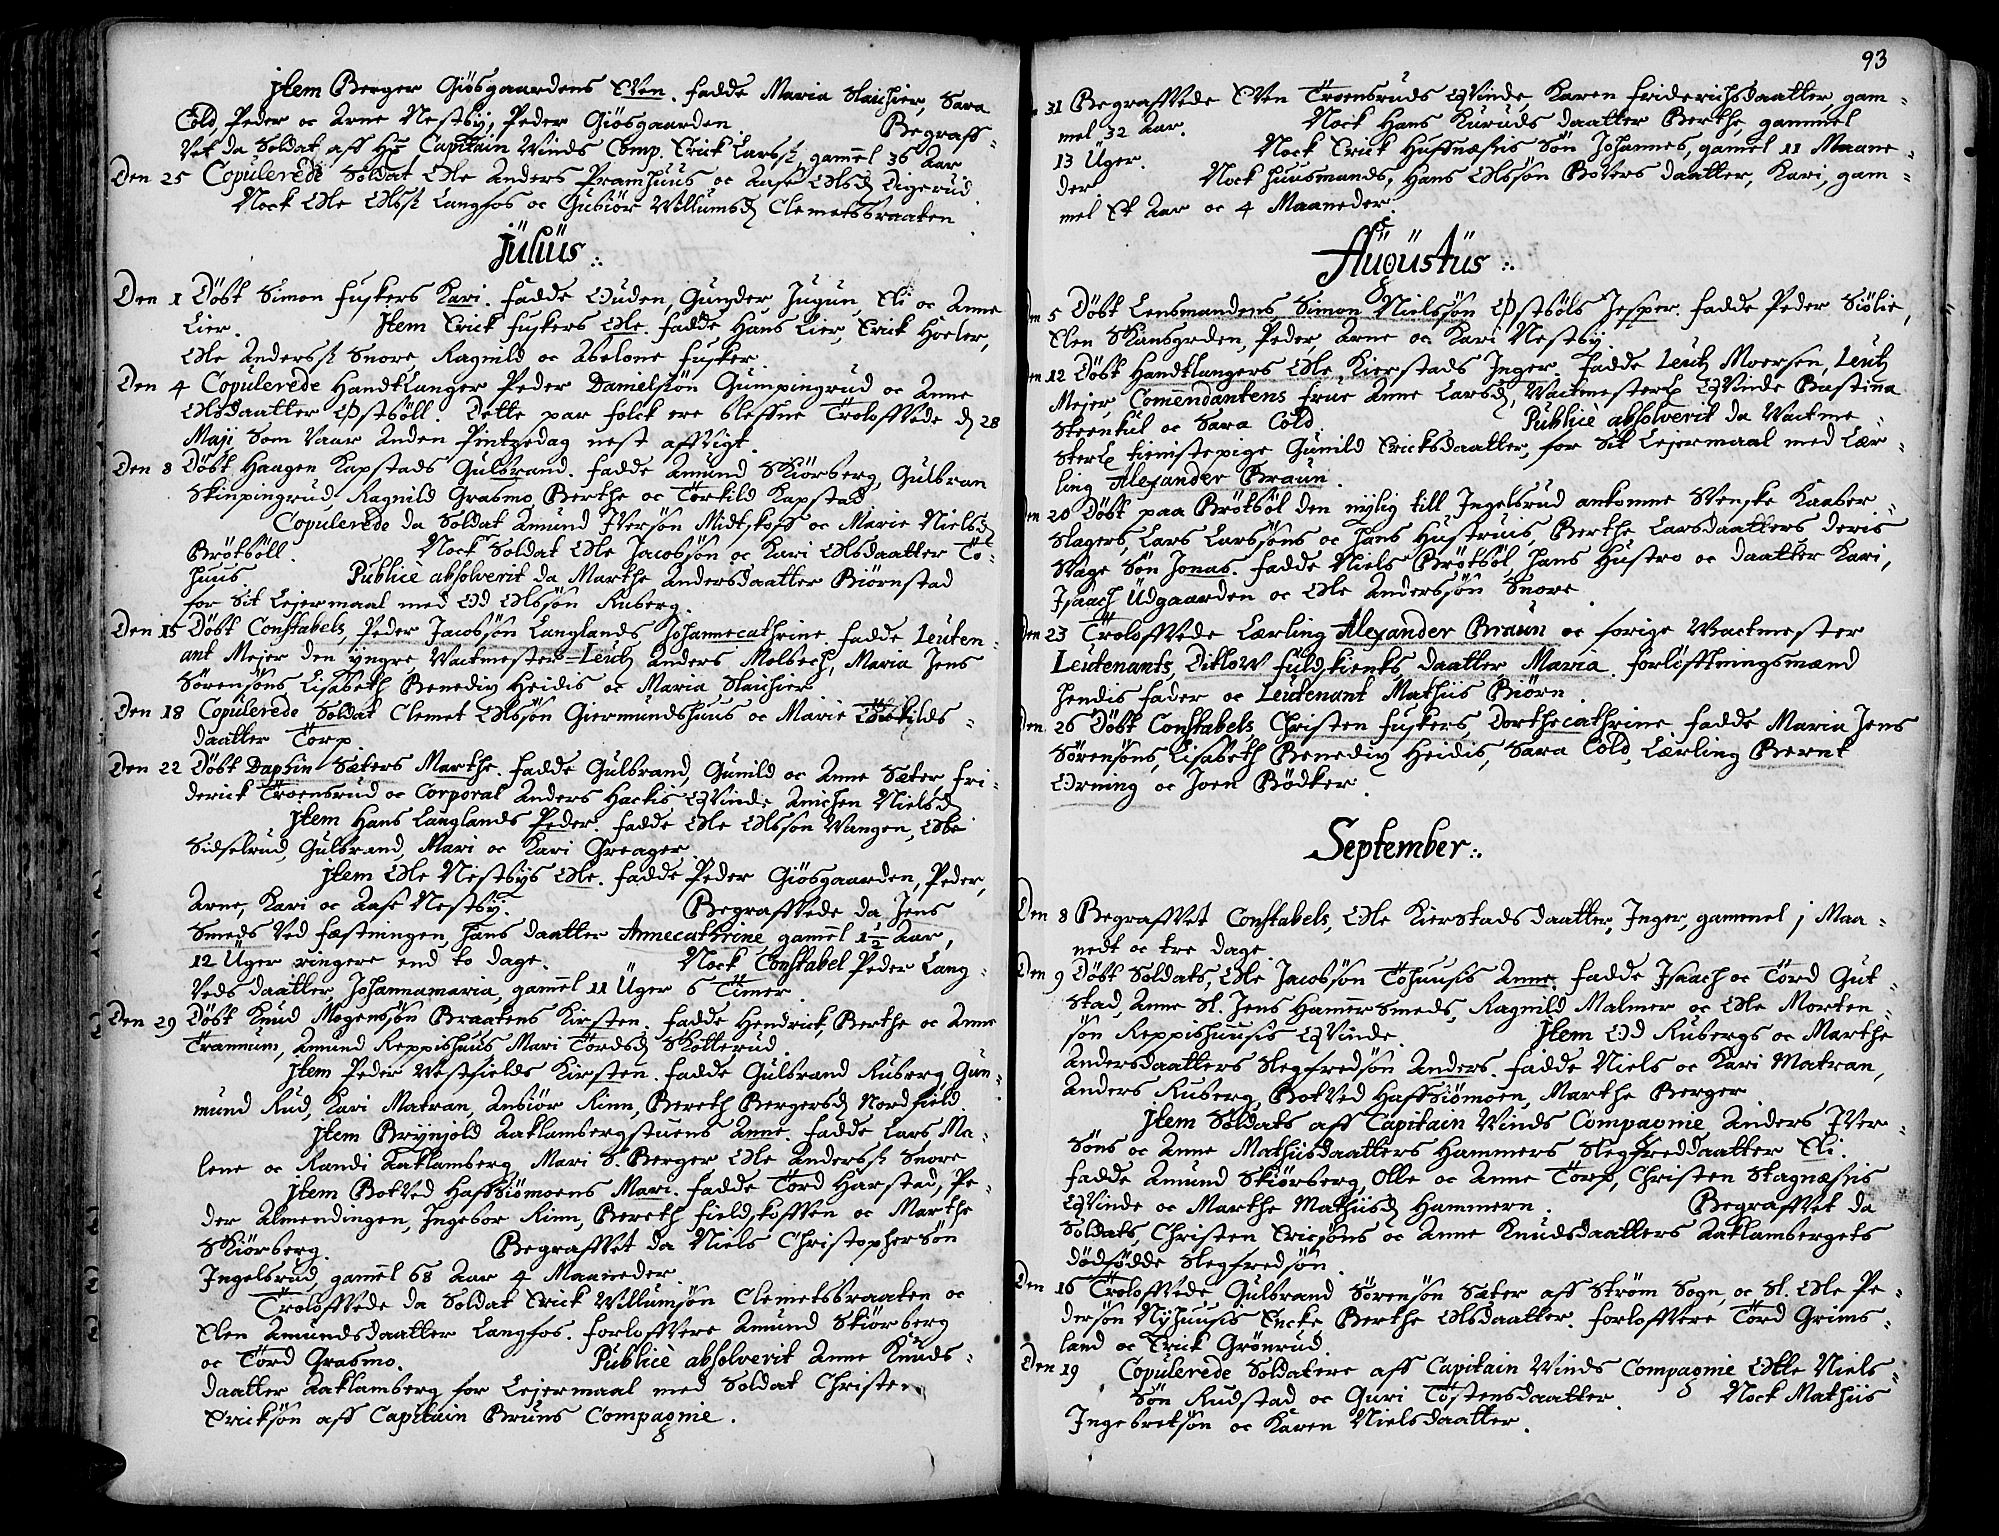 jtem Berger Giösgaardens Even. fadde Maria Slaichier, Sara
Cold, Peder oc Arne Nestby, Peder Giösgaarden. Begraff-
vet da Soldat aff Hr Capitain Winds Comp. Erick Larss:, gamel 36 Aar
Den 25 Copulerede Soldat Ole Anders Pramhuus oc Aase Olsd: Digerud.
Nock Ole Olss: Langfos oc Gubiör Willumsd: Clemetsbraaten
Julius.
Den 1 Döbt Simon fuskers Kari. fadde Ouden, Gunder Jugun, Eli oc Anne
Lier. Jtem Erick fuskers Ole. fadde Hans Lier, Erick Hoeler,
Ole Anderss: Snore, Ragnild oc Abelone fusker.
Den 4 Copulerede Handtlanger Peder Danielssön Gumpingrud oc Anne
Olsdaatter Östsöll. Dette par folck ere bleffne Trolofvede d: 28
Maji Som vaar Anden Pintzedag nest affvigt.
Den 8 Döbt Haagen Kapstads Gulbrand. fadde Amund Skiörberg, Gulbran
Skinpingrud, Ragnild Grasmo, Berthe oc Torkild Kapstad
Copulerede da Soldat Amund Iversön Midtskoff oc Marie Nielsd:
Brötsöll. Nock Soldat Ole Jacobsön oc Kari Olsdaatter To-
huus. Publice absolverit da Marthe Andersdaatter Biörnstad
for Sit Lejermaal med Od Olssön Ruberg.
Den 15 Döbt Constabels, Peder Jacobsön Langlands Johannecathrine. fadde Leuten-
ant Mejer den yngre Wactmester-Leut: Anders Molbech, Maria Jens
Sörensöns Lisabeth Benedix Heidis oc Maria Slaichier
Den 18 Copulerede Soldat Clemet Olssön Giermundshuus oc Marie
daatter Torp
Den 22 Döbt Daphin Sæters Marthe. fadde Gulbrand, Gunild oc Anne Sæter Fri-
derick Troensrud oc Corporal Anders Hackis Qvinde Anichen Nielsd:
jtem Hans Langlands Peder. fadde Ole Olsson Wangen, Ebbe
Sidselrud, Gulbrand, Mari oc Kari Greager
jtem Ole Nestbys Ole. fadde Peder Giösgaarden, Peder,
Arne, Kari oc Aase Nestby. Begrafvede da Jens
Smeds ved fæstningen hans daatter Annecathrine, gamel 1½ Aar,
12 Uger ringere end to dage. Nock Constabel Peder Lang-
veds daatter, Johannamaria, gamel 11 Uger 6 Timer
Den 29 Döbt Knud Mogenssön Braatens Kirsten. fadde Hendrick, Berthe oc Anne
Trannum, Amund Reppishuus Mari Tordsd: Skotterud
jtem Peder Westfields Kirsten. fadde Gulbrand Ruberg Gun-
mund Rud, Kari Matran, Anbiör Rinn, Bereth Bergersd: Nordfield
jtem Brynjold Aaklambergstuens Anne. fadde Lars Ma-
lene oc Randi Aaklamberg, Mari S. Berger Ole Anderss: Snore
jtem Botved Haffsiömoens Mari. fadde Tord Harstad, Pe-
der Almendingen, Ingebor Rinn, Bereth fieldskofven oc Marthe
Skiörberg. Begrafvet da Niels Christophersön
Ingelsrud, gamel 68 Aar 4 Maaneder.
Trolofvede da Soldat Erick Willumsön Clemetsbraaten oc
Elen Amundsdaatter Langfos. forlofvere Amund Skiörberg
oc Tord Grasmo. Publice absolverit Anne Knuds-
daatter Aaklamberg for Lejermaal med Soldat Christen
Ericksön aff Capitain Bruns Compagnie.
93
31 Begrafvede Even Troensruds Qvinde, Karen Friderichsdaatter, gam-
mel 32 Aar. Nock Hans Kuruds daatter Berthe, gammel
13 Uger. Nock Erick Huffnæssis Sön Johannes, gamel 11 Maane-
der Nock Huusmands, Hans Olssön Bovers daatter, Kari, gam-
mel Et Aar oc 4 Maaneder.
Augustus.
Den 5 Döbt Lensmandens Simon Nielssön Östsöls Jesper. fadde Peder Siölie,
Elen Skansgrden, Peder, Arne oc Kari Nestby.
Den 12 Döbt Handtlangers Ole Kierstads Inger. fadde Leut: Moersen, Leut:
Mejer Comendantens frue Anne Larsd:, Wactmesterl: Qvinde Bastina
Steenkul oc Sara Cold. Publice absolverit da Wactme-
sterl: tienistepige Gunild Ericksdaatter, for Sit Lejermaal med Lær-
ling Alexander Braun.
Den 20 Döbt paa Brötsöl den nylig till Ingelsrud ankomne Svenske Kaaber-
slagers, Lars Larssöns oc hans Hustruis, Berthe Larsdaatters deris
Svage Sön Jonas. fadde Niels Brötsöl hans Hustro oc daatter Kari,
Isaach Udgaarden oc Ole Anderssön Snore
Den 23 Trolofvede Lærling Alexander Braun oc forige Wactmester
Leutenants, Ditlow fuldskients daatter Maria. forlöfftningsmænd
hendis fader oc Leutenant Mathiis Biörn.
Den 26 Döbt Constabels Christen fuskers, Dorthecathrine. fadde Maria Jens
Sörensöns, Lisabeth Benedix Heidis, Sara Cold, Lærling Bernt
Orning oc Joen Bödker.
September.
Den 8 Begrafvet Constabels, Ole Kierstads daatter, Inger, gammel 1 Maa-
nedt oc tre dage.
Den 9 Döbt Soldats, Ole Jacobsön Tohuusis Anne. fadde Isaach oc Tord Gut-
stad, Anne Sl. Jens Hamersmeds, Ragnild Malmer oc Ole Morten-
sön Reppishuusis Qvinde. Jtem Od Rubergs oc Marthe
Andersdaatters Slegfredsön Anders. fadde Niels oc Kari Matran,
Anders Ruberg, Botved Haffsiömoen, Marthe Berger
jtem Soldats aff Capitain Winds Compagnie Anders Iver-
söns oc Anne Mathisdaatters Hammers Slegfreddaatter Eli.
fadde Amund Skiörberg, Olle oc Anne Torp, Christen Stagnæssis
Qvinde oc Marthe Mathiisd: Hammern. Begrafvet da
Soldats, Christen Ericsöns oc Anne Knudsdaatters Aaklambergets
dödfödde Slegfredsön.
Den 16 Trolofvede Gulbrand Sörensön Sæter aff Ström Sogn, oc Sl. Ole Pe-
dersön Nyhuusis Encke Berthe Olsdaatter. forlofvere Tord Grims-
land oc Erick Grönrud.
Den 19 Copulerede Soldatere aff Capitain Winds Compagnie Otte Niels-
Sön Rudstad oc Guri Tostensdaatter. Nock Mathiis
Ingebretsön oc Karen Nielsdaatter.